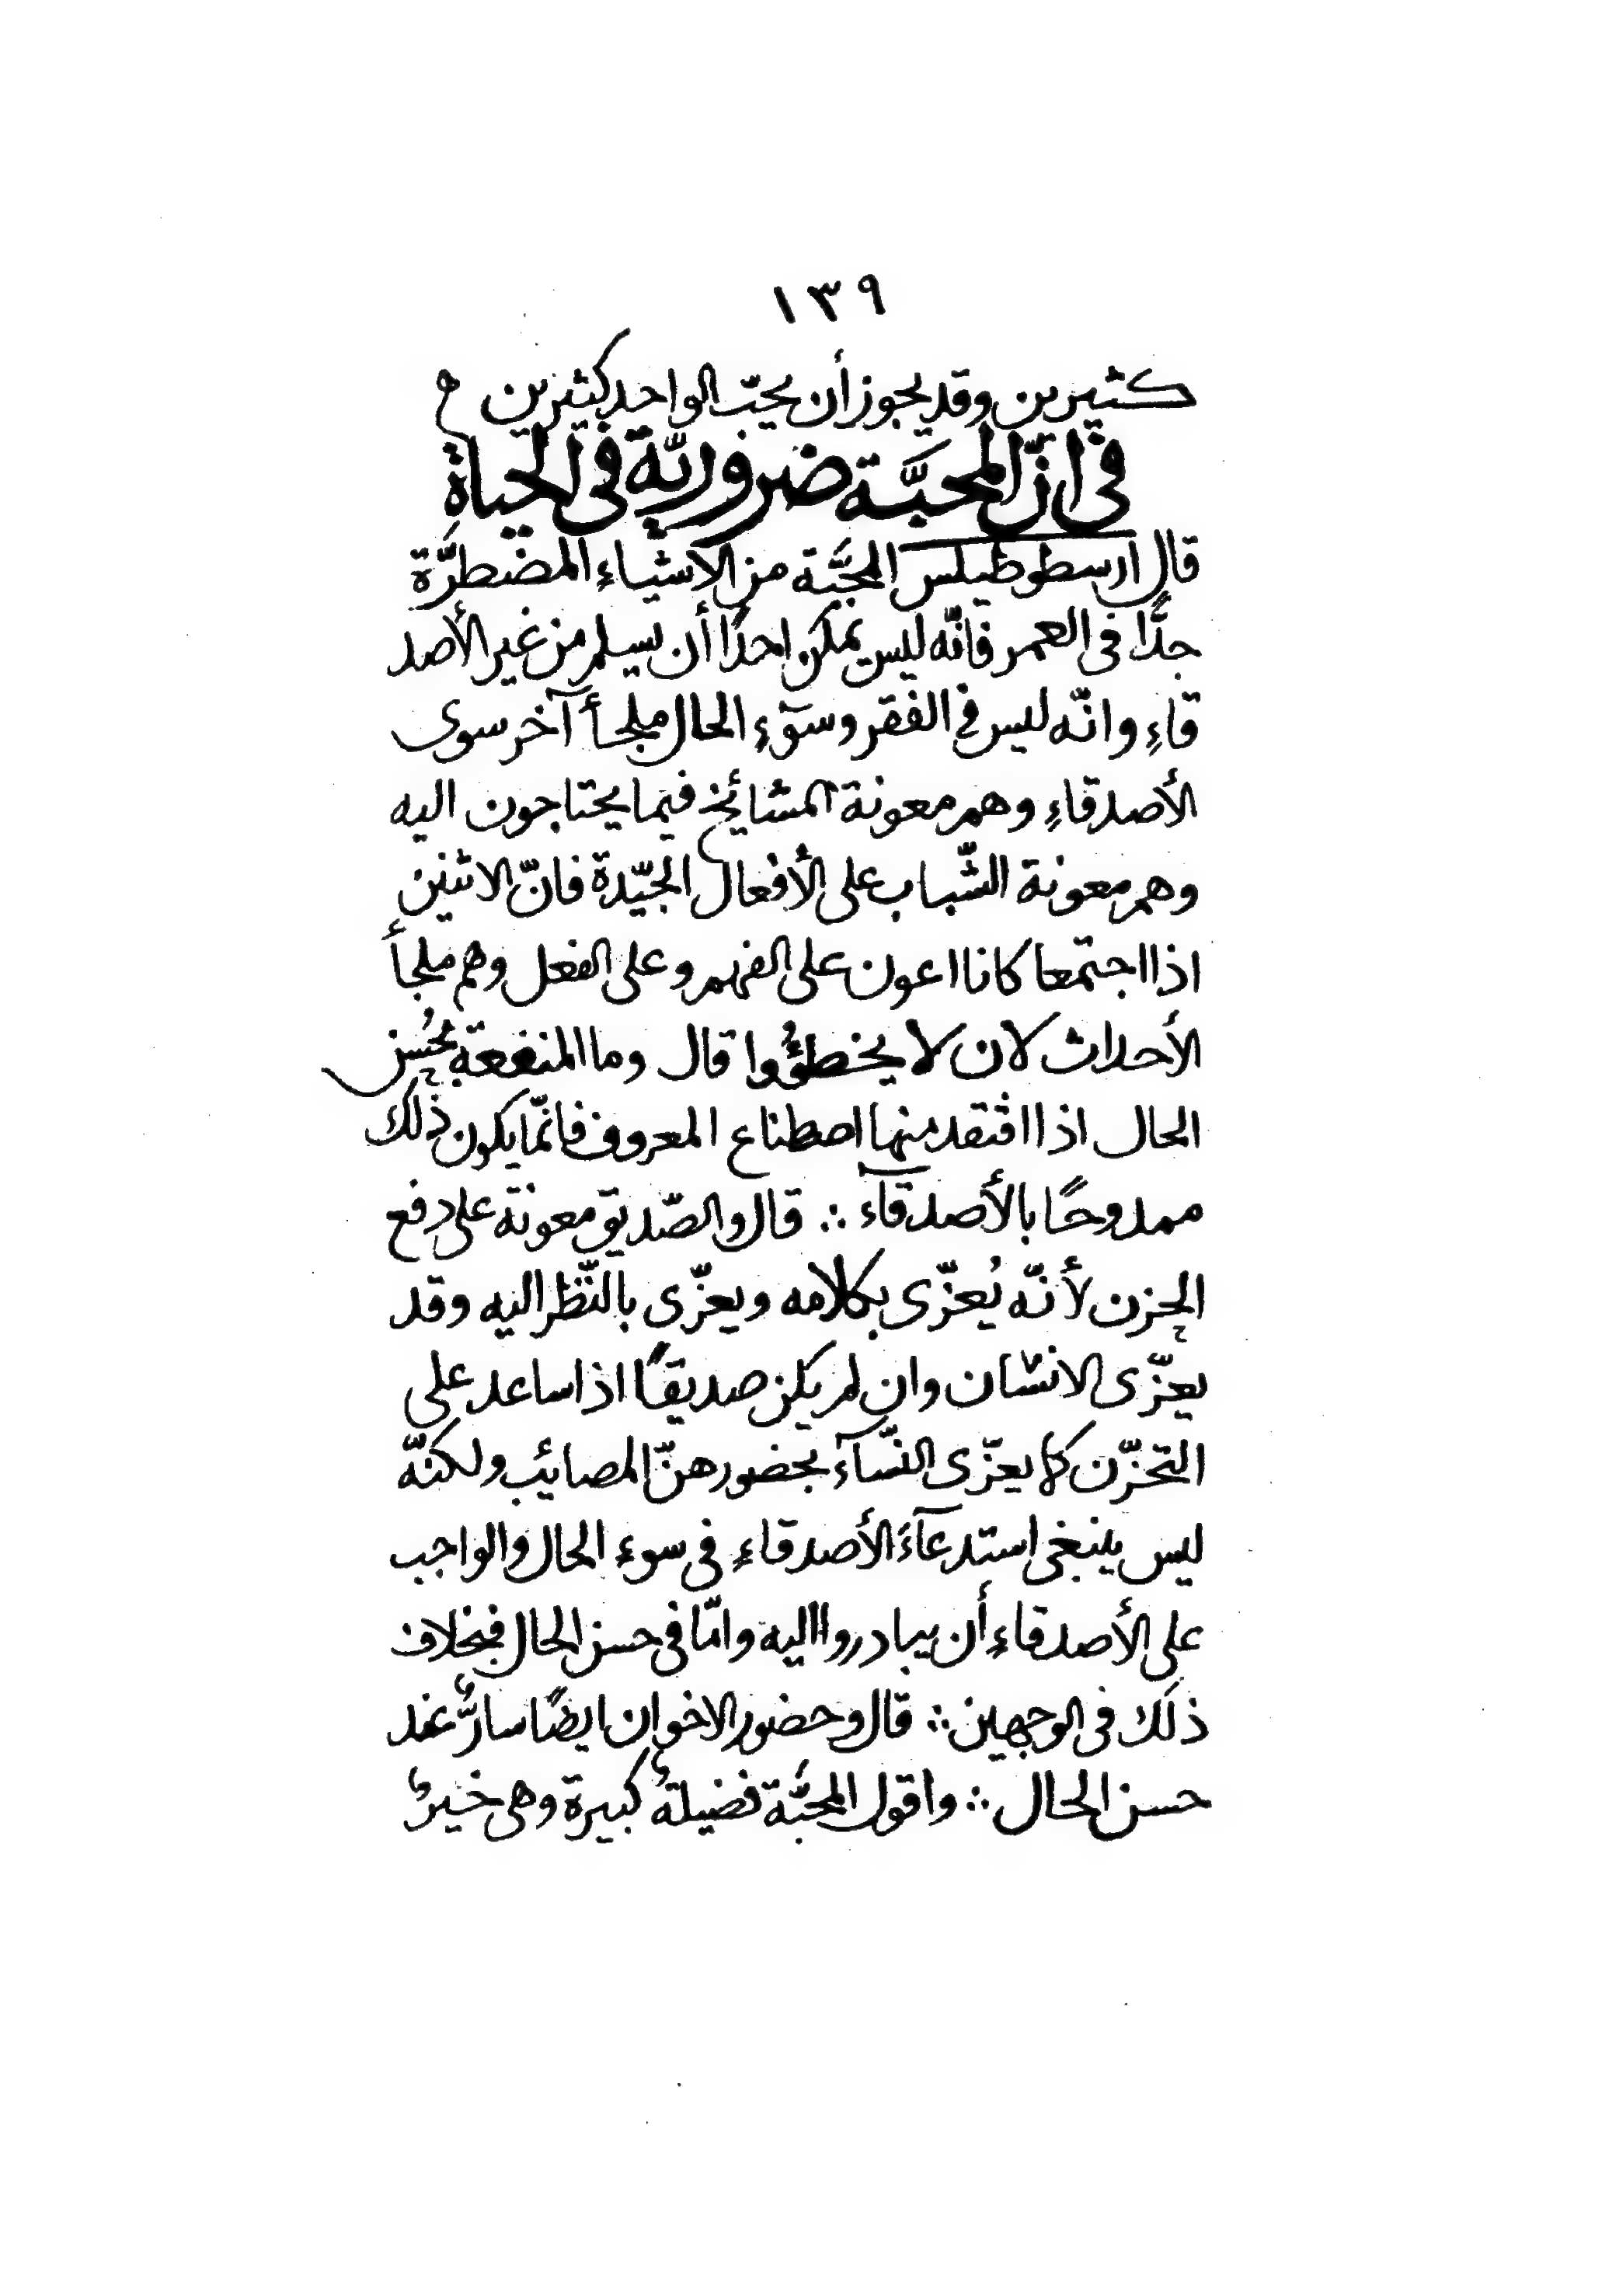 ١٣٩
كثيرين وقد يجوز أن يحبّ الواحد كثيرين ه
فى انّ المحبَّة ضروريّة فى الحياة
قال ارسطوطيلس المحبَّة من الأشياءِ المضطرَّة
جدًّا فى العمر فانّه ليس يمكن احدًا أن يسلم من غير الأصد
قاءِ وانّه ليس فى الفقر وسوٓءِ الحال ملجأ آخر سوى
الأصدقاءِ وهم معونة المشائخ فيما يحتاجون اليه
وهم معونة الشّباب على الأفعال الجيّدة فانّ الاثنين
اذا اجتمعا كانا اعون على الفهم وعلى الفعل وهم ملجأ
الأحداث لان لا يخطؤُوا قال وما المنفعة بحُسن
الحال اذا افتقد منها اصطناع المعروف فانّما يكون ذلك
ممدوحًا بالأصدقآء ∴ قال والصّديق معونة على دفع
الحزن لأنّه يُعزّى بكلامه ويعزّى بالنّظر اليه وقد
يعزّى الانسان وان لم يكن صديقًا اذا ساعد على
التحزّن كما يعزّى النّسآء بحضورهنّ المصائب ولكنّه
ليس ينبغى استدعآءَ الأصدقاءِ فى سوء الحال والواجب
على الأصدقاءِ أن يبادروا اليه وامّا فى حسن الحال فبخلاف
ذلك فى الوجهين ∴ قال وحضور الاخوان ايضًا سارٌّ عند
حسن الحال ∴ واقول المحبَّة فضيلةٌ كبيرة وهى خيرٌ